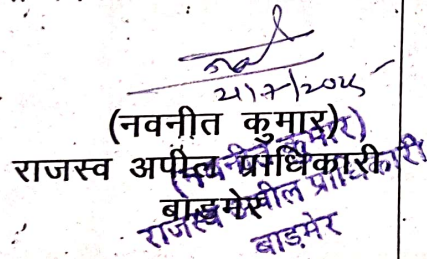 21/7/2025
(नवनीत कुमार)
राजस्व अपील प्राधिकारी,
बाड़मेर
(नवनीत कुमार)
राजस्व अपील प्राधिकारी
बाड़मेर